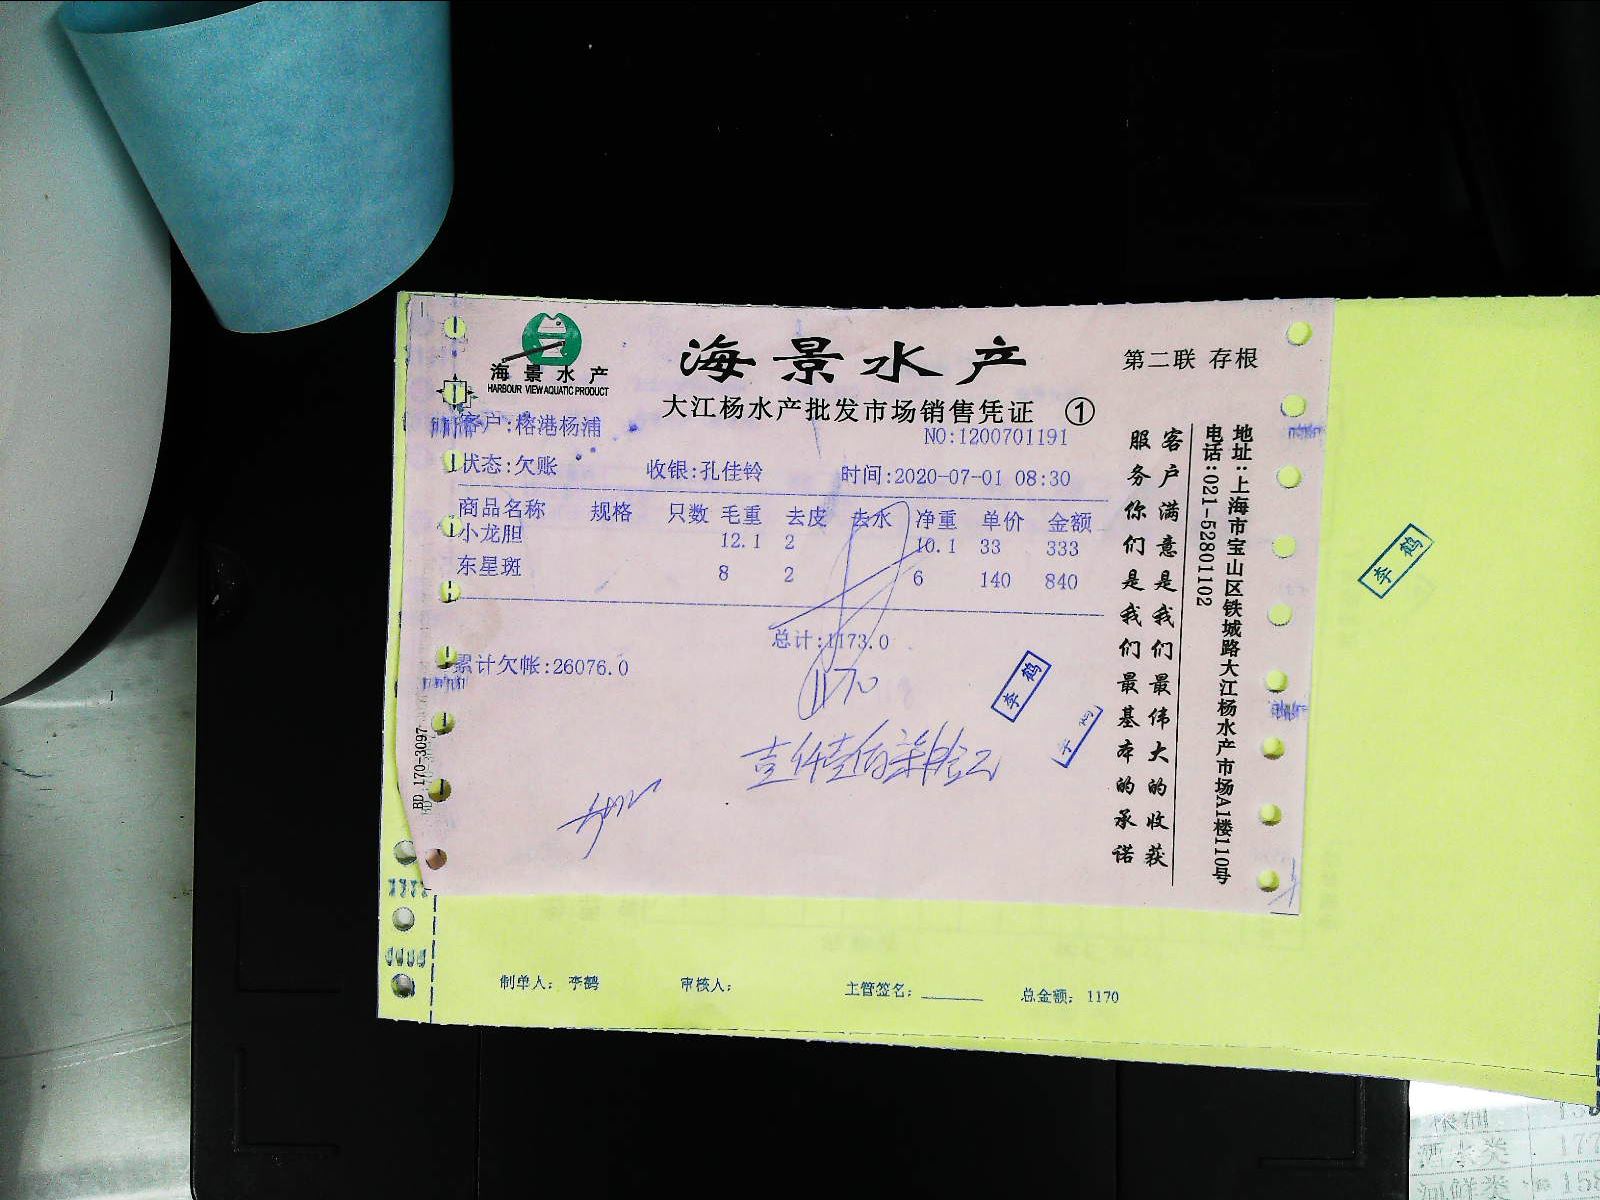 海景水产
HARBOUR VIEW AQUATIC PRODUCT
海景水产
第二联 存根
大江杨水产批发市场销售凭证 ①
客户:榕港杨浦
NO:1200701191
状态:欠账 收银:孔佳铃 时间:2020-07-01 08:30
商品名称 规格 只数 毛重 去皮 去水 净重 单价 金额
小龙胆 12.1 2 10.1 33 333
东星斑 8 2 6 140 840
总计:1173.0
累计欠帐:26076.0
1170
壹仟壹佰柒拾元
李鹤
李鹤
李鹤
客户满意是我们最伟大的收获
服务你们是我们最基本的承诺
地址:上海市宝山区铁城路大江杨水产市场A1楼110号
电话:021-52801102
BD 171-03097
制单人: 李鹤 审核人: 主管签名: 总金额: 1170
酒水类 177
河鲜类 158